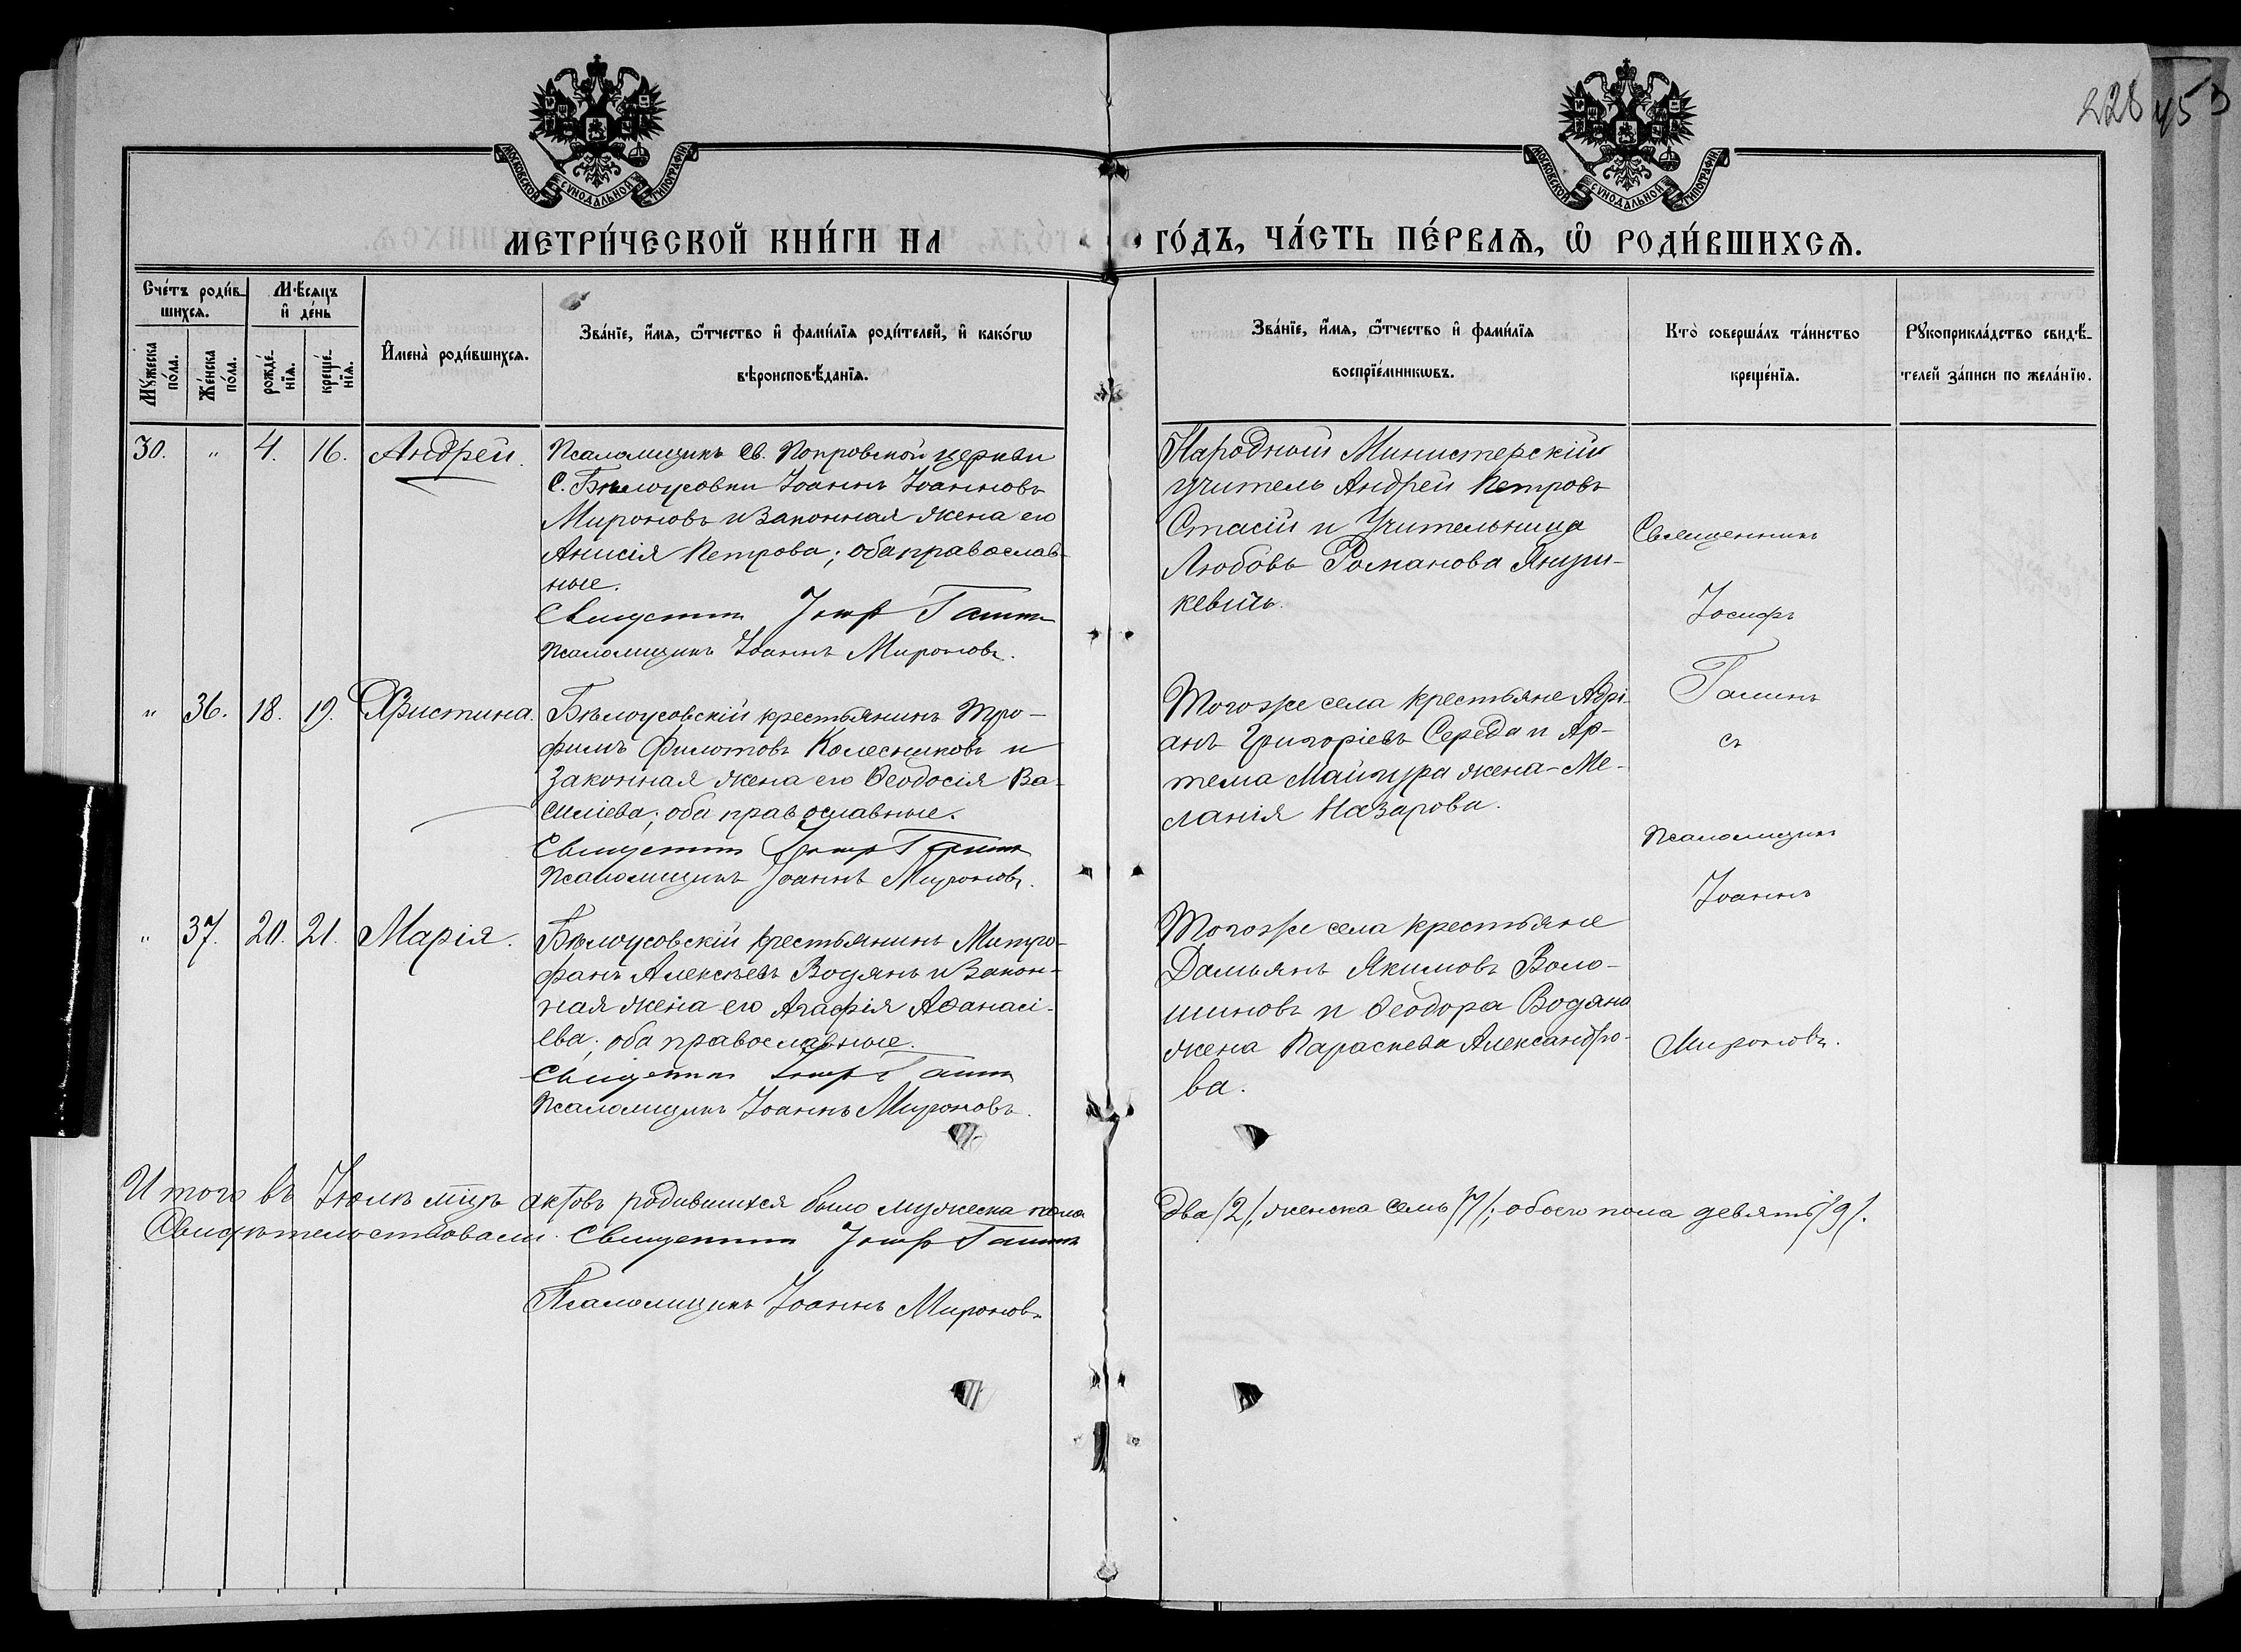 228 453
МОСКОВСКОЙ СУНОДАЛЬНОЙ ТИПОГРАФІИ
МОСКОВСКОЙ СУНОДАЛЬНОЙ ТИПОГРАФІИ
МЕТРИ́ЧЕСКОЙ КНИ́ГИ НА
ГО́ДЪ, ЧА́СТЬ ПЕ́РВАѦ, Ѽ РОДИ́ВШИХСѦ.
Сче́тъ роди́в-
шихсѧ.
Мѣ́сѧцъ
и҆ де́нь
Му́жеска
по́ла.
Же́нска
по́ла.
рожде́-
нїѧ.
креще́-
нїѧ.
И҆мена̀ роди́вшихсѧ.
Зва́нїе, и҆́мѧ, ѻ҆́тчество и҆ фами́лїѧ роди́телей, и҆ како́гѡ
вѣроисповѣ́данїѧ.
Зва́нїе, и҆́мѧ, ѻ҆́тчество и҆ фами́лїѧ
воспрїе́мникѡвъ.
Кто̀ соверша́лъ та́инство
креще́нїѧ.
Рꙋкоприкла́дство свидѣ́-
телей за́писи по жела́нїю.
30. " 4. 16. Андрей.
Псаломщикъ Св. Покровской церкви
с. Бѣлоусовки Іоаннъ Іоанновъ
Мироновъ и законная жена его
Анисія Петрова; оба православ-
ные.
Священникъ Іосифъ Галинъ
Псаломщикъ Іоаннъ Мироновъ.
Народный Министерскій
учитель Андрей Петровъ
Стасій и Учительница
Любовь Романова Януш-
кевичъ.
" 36. 18. 19. Христина.
Бѣлоусовскій крестьянинъ Тро-
фимъ Филотовъ Колесниковъ и
законная жена его Ѳеодосія Ва-
силіева; оба православные.
Священникъ Іосифъ Галинъ
Псаломщикъ Іоаннъ Мироновъ.
Тогоже села крестьяне Адрі-
анъ Григоріевъ Середа и Ар-
тема Майгура жена-Ме-
ланія Назарова.
" 37. 20. 21. Марія.
Бѣлоусовскій крестьянинъ Митро-
фанъ Алексѣевъ Водянъ и закон-
ная жена его Агафія Аѳанасі-
ева; оба православные.
Священникъ Іосифъ Галинъ
Псаломщикъ Іоаннъ Мироновъ.
Тогоже села крестьяне
Дамьянъ Якимовъ Воло-
шиновъ и Ѳеодора Водяна
жена Параскева Александро-
ва.
Священникъ
Іосифъ
Галинъ
съ
Псаломщик.
Іоаннъ
Мироновъ.
Итого въ Іюлѣ мцѣ актовъ родившихся было мужеска пола
два /2/, женска семь /7/; обоего пола девять /9/.
Свидѣтельствовали: Священникъ Іосифъ Галинъ
Псаломщикъ Іоаннъ Мироновъ